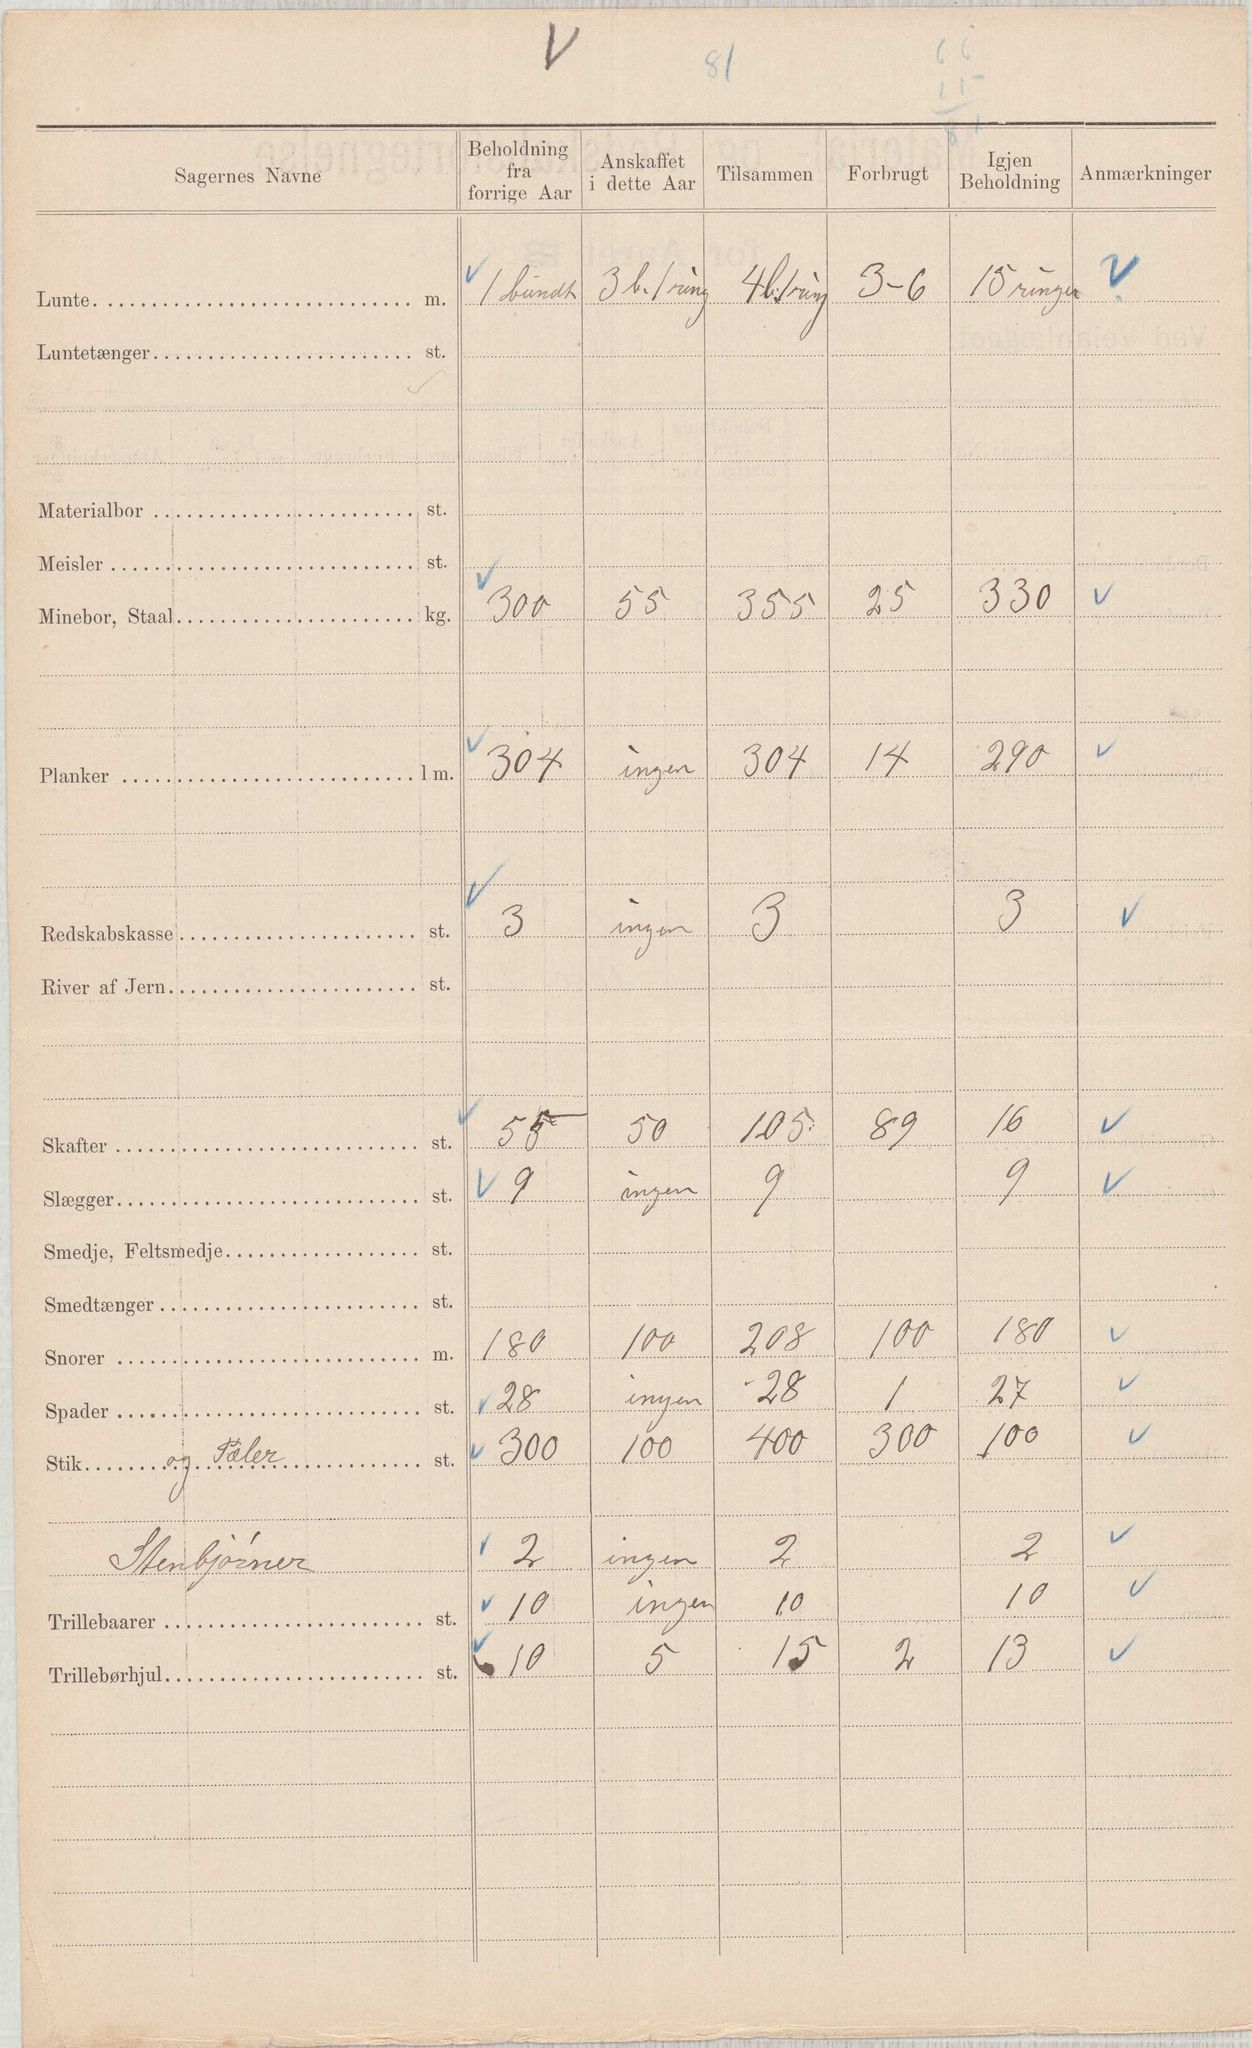 V 81 66
15
81
Sagernes Navne Beholdning fra forrige Aar Anskaffet i dette Aar Tilsammen Forbrugt Igjen Beholdning Anmærkninger
Lunte m. ✓ 1 bundt 3 b. 1 ring 4 b. 1 ring 3-6 15 ringer ✓
Luntetænger st.
Materialbor st.
Meisler st.
Minebor, Staal kg. ✓ 300 55 355 25 330 ✓
Planker l m. ✓ 304 ingen 304 14 290 ✓
Redskabskasse st. ✓ 3 ingen 3 3 ✓
River af Jern st.
Skafter st. ✓ 55 50 105 89 16 ✓
Slægger st. ✓ 9 ingen 9 9 ✓
Smedje, Feltsmedje st.
Smedtænger st.
Snorer m. 180 100 208 100 180 ✓
Spader st. ✓ 28 ingen 28 1 27 ✓
Stik og Pæler st. ✓ 300 100 400 300 100 ✓
Stenbjørner ✓ 2 ingen 2 2 ✓
Trillebaarer st. ✓ 10 ingen 10 10 ✓
Trillebørhjul st. ✓ 10 5 15 2 13 ✓